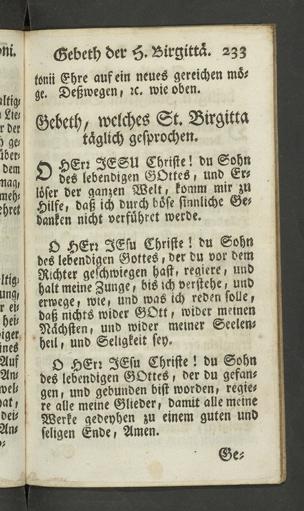 oni.
Gebeth der H. Birgittä. 233
tonii Ehre auf ein neues gereichen mö-
ge. Deßwegen, ꝛc. wie oben.
Gebeth, welches St. Birgitta
täglich gesprochen.
O HErr JESU Christe! du Sohn
des lebendigen GOttes, und Er-
löser der ganzen Welt, komm mir zu
Hilfe, daß ich durch böse sinnliche Ge-
danken nicht verführet werde.
O HErr JEsu Christe! du Sohn
des lebendigen Gottes, der du vor dem
Richter geschwiegen hast, regiere, und
halt meine Zunge, bis ich verstehe, und
erwege, wie, und was ich reden solle,
daß nichts wider GOtt, wider meinen
Nächsten, und wider meiner Seelen-
heil, und Seligkeit sey.
O HErr JEsu Christe! du Sohn
des lebendigen GOttes, der du gefan-
gen, und gebunden bist worden, regie-
re alle meine Glieder, damit alle meine
Werke gedeyhen zu einem guten und
seligen Ende, Amen.
Ge-